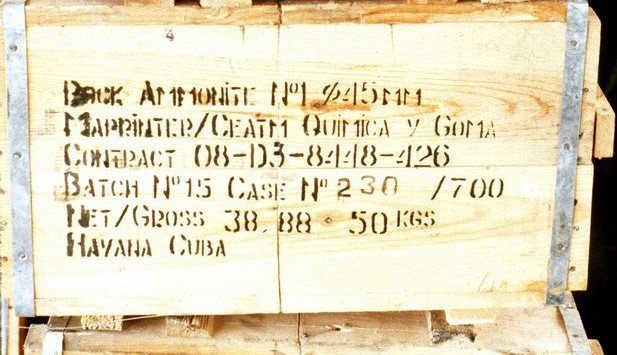 4
Rock Ammonite Nº1 ø45mm
Maprinter/Ceatm Quimica y Goma
Contract 08-D3-8448-426
Batch Nº15 Case Nº 230 /700
Net/Gross 38.88 - 50 KGS
Havana Cuba